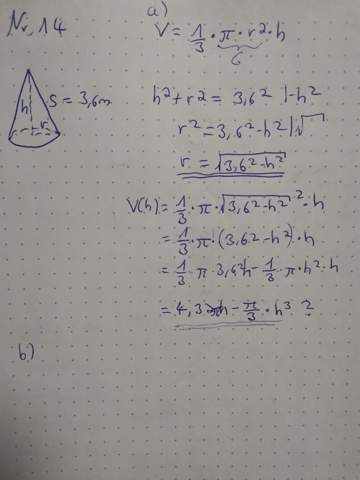 Nr. 14
a)
V = 1/3 · π · r2 · h
G
h
r
S = 3,6m
h² + r2 = 3,6² |-h²
r² = 3,6² - h² |√
r = √3,6² - h²
V(h) = 1/3 · π · √3,6² - h² ² · h
= 1/3 · π · (3,6² - h²) · h
= 1/3 · π · 3,6² h - 1/3 · π · h² · h
= 4,3 h - π/3 · h³ ?
b)